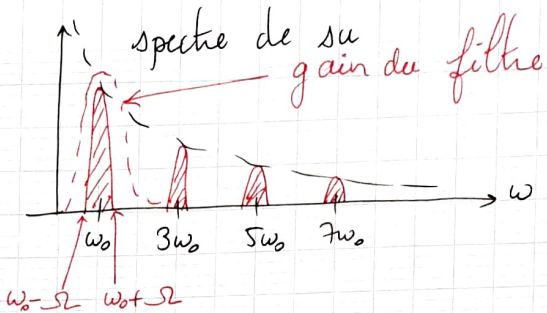 spectre de su
gain du filtre
ω
ω₀ 3ω₀ 5ω₀ 7ω₀
ω₀-Ω ω₀+Ω